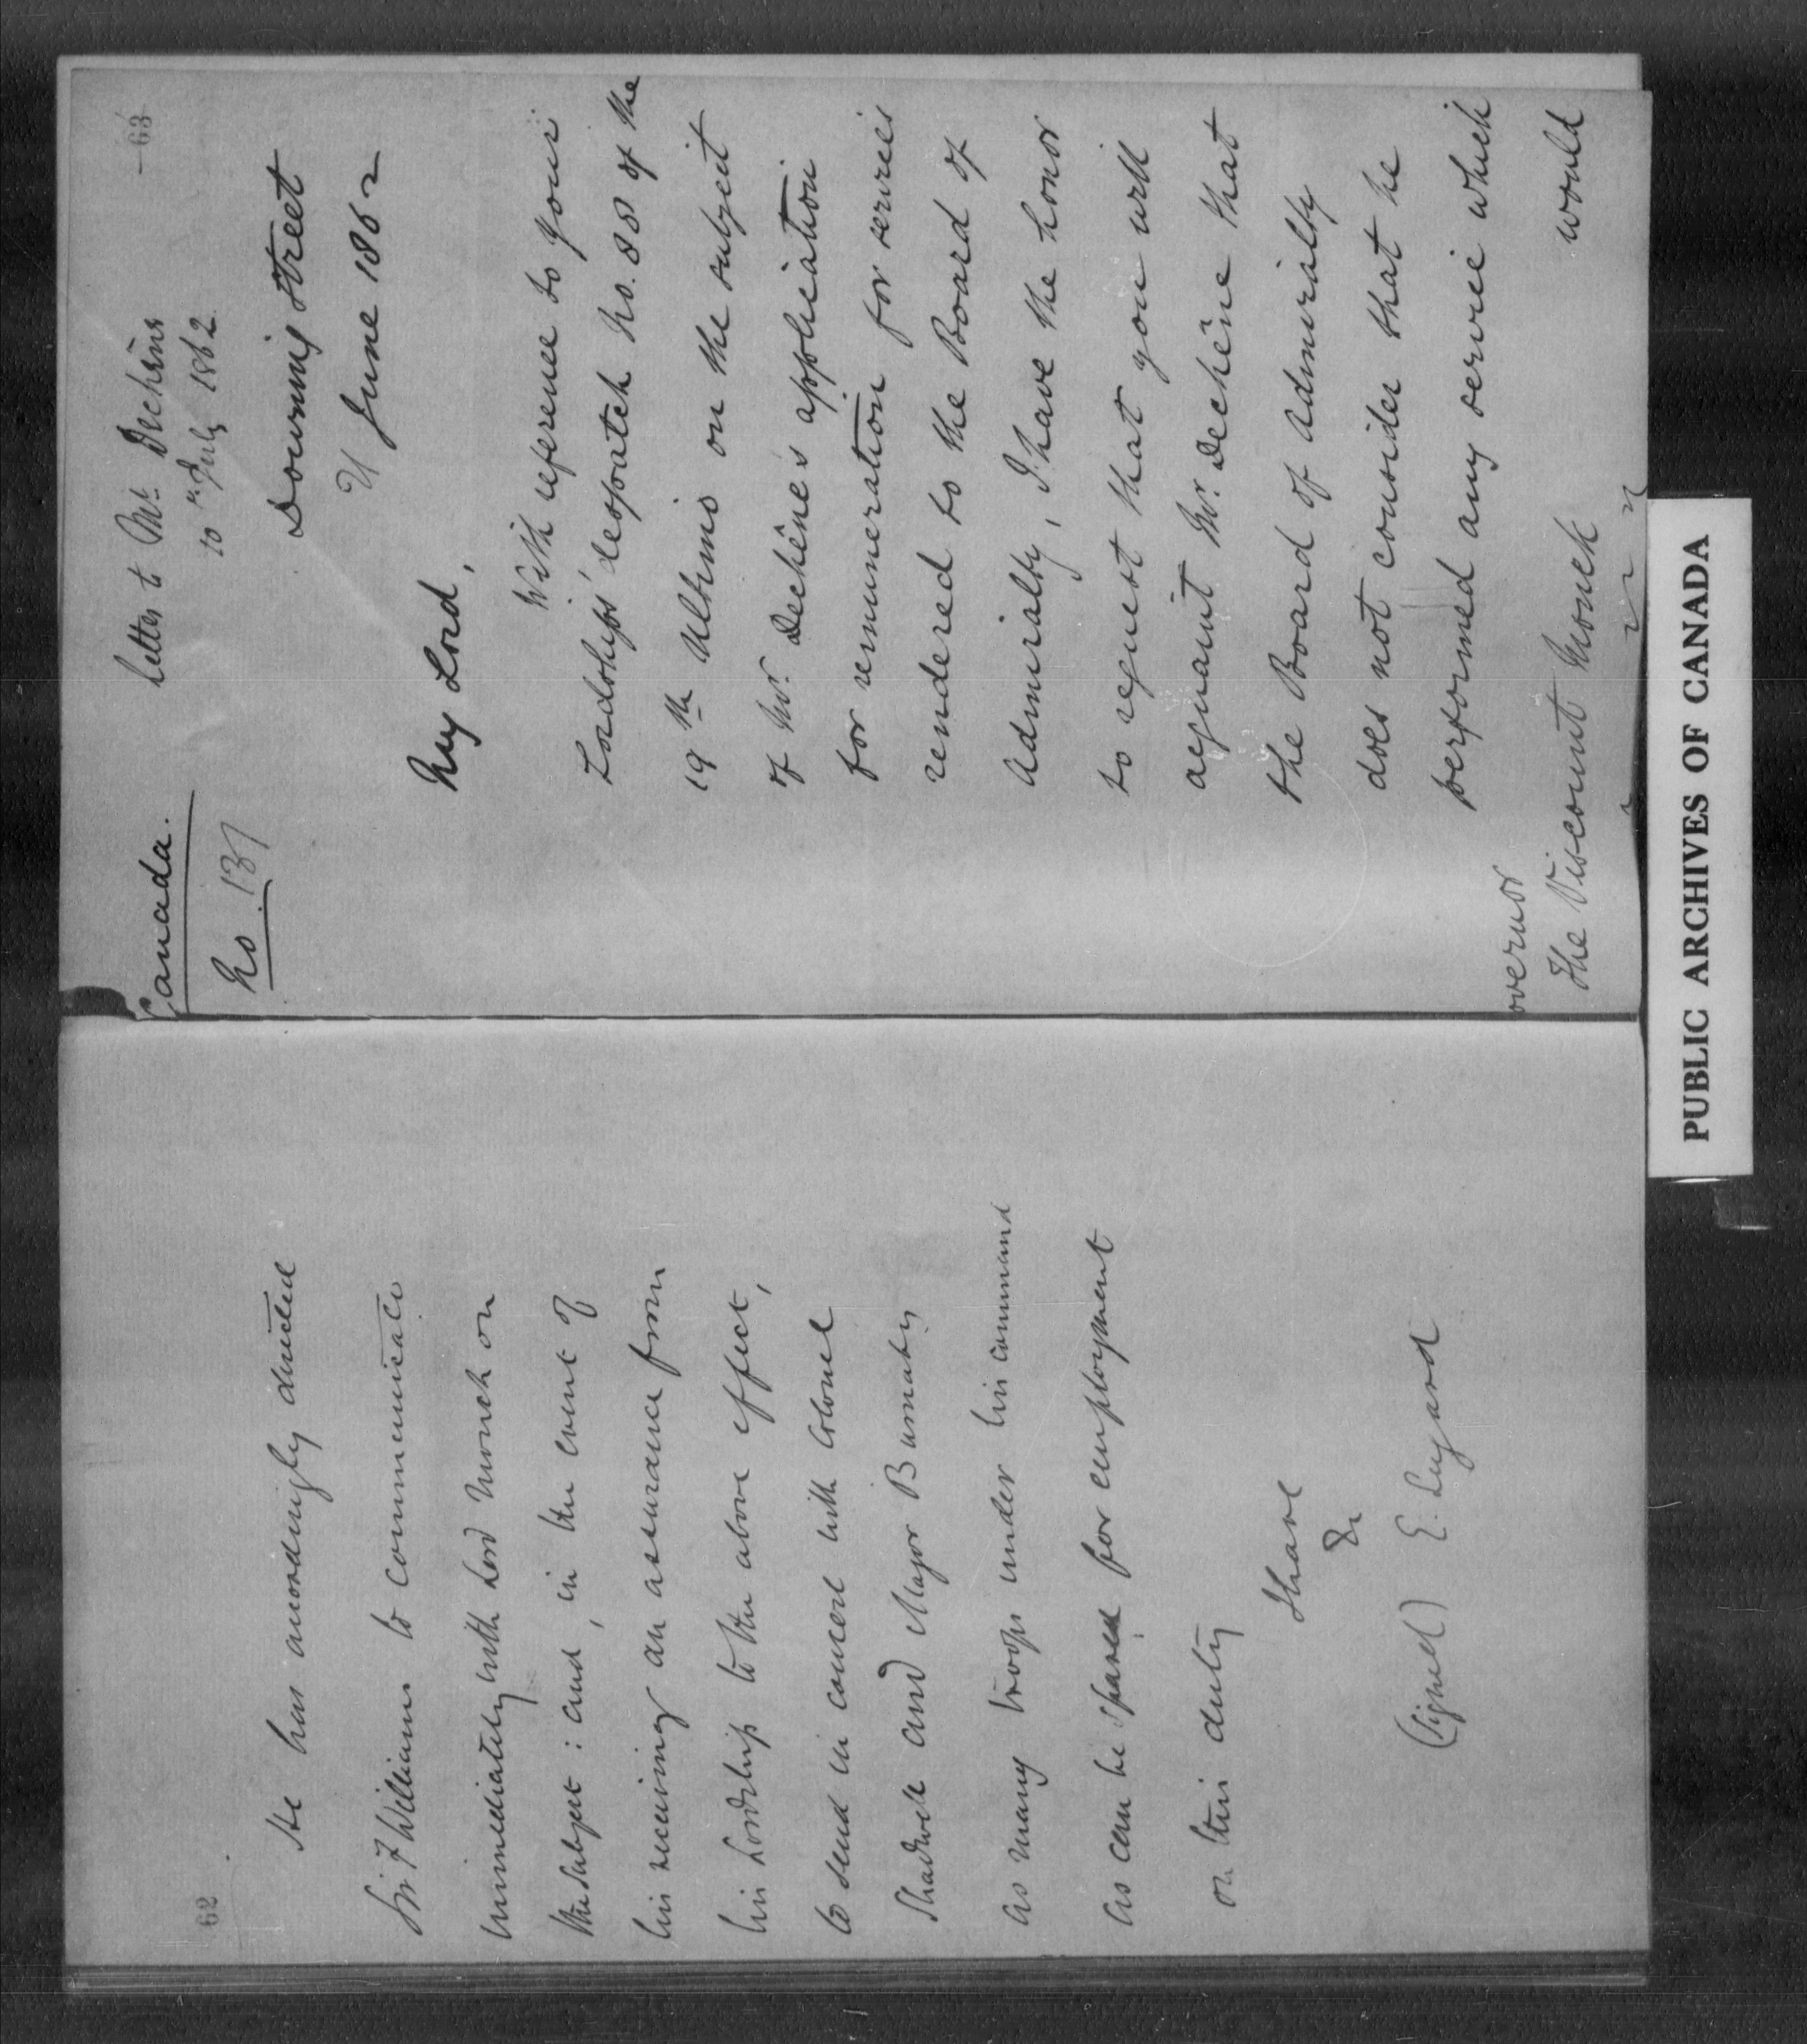 62
He has accordingly directed
Sir F Williams to communicate
immediately with Lord Monck on
the subject : and, in the event of
his receiving an assurance from
his Lordship to the above effect,
to send in concert with Colonel
Shadwell and Major Burnaby
as many troops under his command
as can be spared for employment
on this duty
I have
&c
(signed) E. Lugard
63
Canada.
No. 137
Letter to Mr. Dechêne
10th July 1862
Downing Street
11 June 1862
My Lord,
With reference to Your
Lordship's despatch No. 88 of the
19th Ultimo on the subject
of Mr. Dechêne's application
for remuneration for services
rendered to the Board of
Admiralty, I have the honor
to request that you will
acquaint Mr. Dechêne that
the Board of Admiralty
does not consider that he
performed any service which
would
overnor
The Viscount Monck
PUBLIC ARCHIVES OF CANADA